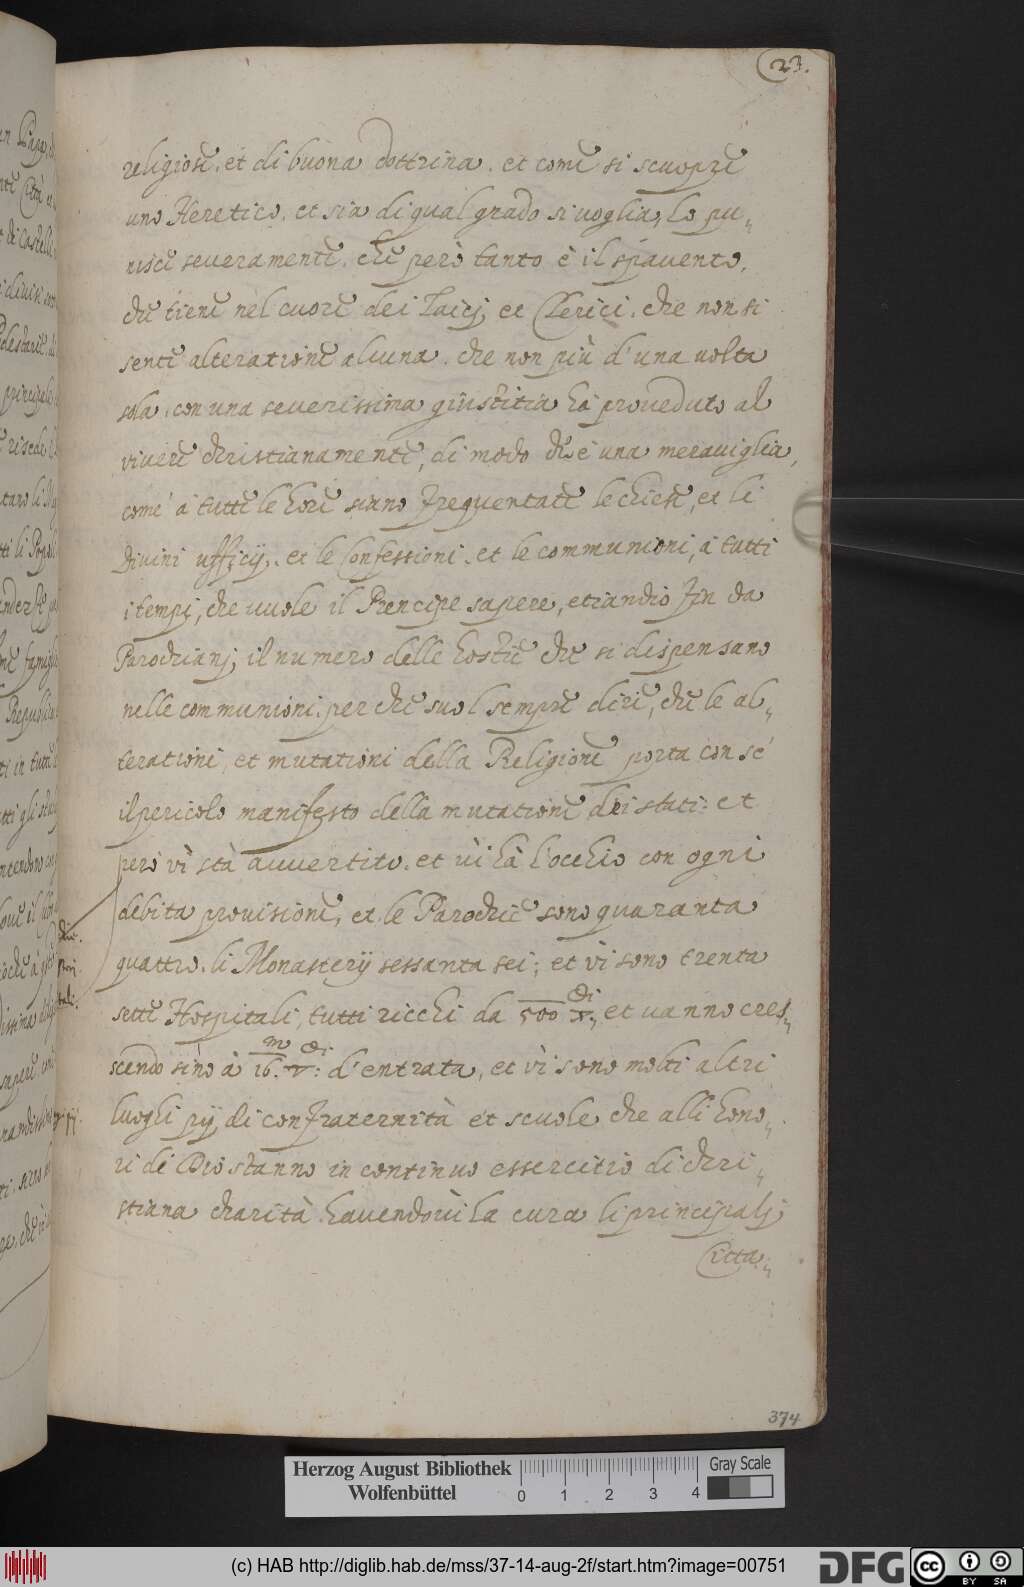 23.
religiose, et di buona dottrina. et come si scuopre
uno Heretico. et sia di qual grado si uoglia, lo pu„
nisce seueramente. che però tanto è il spauento,
che tiene nel cuore dei Laicj et Clerici. che non si
sente alteratione alcuna. che non più d'una uolta
sola, con una seuerissima giustitia hà proueduto al
viuere christianamente, di modo ch'è una merauiglia,
come à tutte le hore siano frequentate le chiese, et li
Diuini ufficij, et le Confessioni. et le communioni, à tutti
i tempi, che vuole il Prencipe sapere, etiandio fin da
Parochianj il numero delle hostie che si dispensano
nelle communioni. perche suol sempre dire, che le al„
terationi, et mutationi della Religione porta con sé
il pericolo manifesto della mutatione dei stati: et
però vi stà auuertito. et ui hà l'occhio con ogni
debita prouisione, et le Parochie sono quaranta
quattro. li Monasterij sessanta sei; et vi sono trenta
sette Hospitali, tutti ricchi da 500 di et uanno cres„
scendo sino à 16. m di d'entrata, et vi sono molti altri
luoghi pij di confraternità et scuole che alli hono„
ri di Dio stanno in continuo essercitio di chri„
stiana charità hauendoui la cura li principalj
Citta„
374
Herzog August Bibliothek
Wolfenbüttel
0 1 2 3 4
Gray Scale
(c) HAB http://diglib.hab.de/mss/37-14-aug-2f/start.htm?image=00751
DFG
cc BY SA